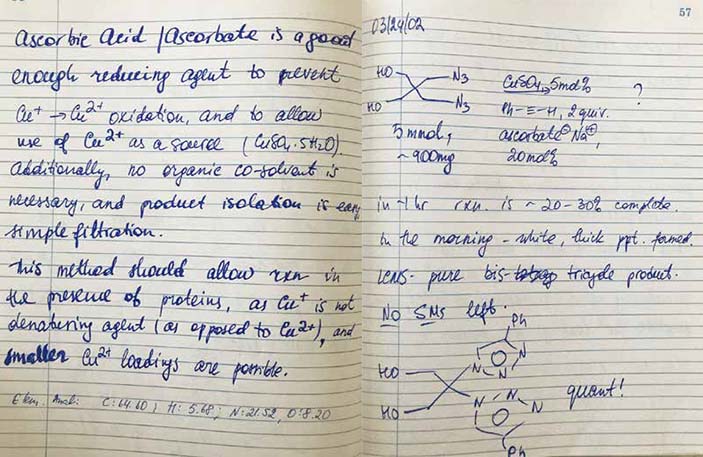 Ascorbic Acid / Ascorbate is a good
enough reducing agent to prevent
Cu⁺ → Cu²⁺ oxidation, and to allow
use of Cu²⁺ as a source (CuSO₄·5H₂O).
Additionally, no organic co-solvent is
necessary, and product isolation is easy
simple filtration.
This method should allow rxn in
the presence of proteins, as Cu⁺ is not
denaturing agent (as opposed to Cu²⁺), and
smaller Cu²⁺ loadings are possible.
Elem. Anal: C: 64.60; H: 5.68; N: 21.52, O: 8.20
57
03/24/02
HO N₃
HO N₃
CuSO₄, 5mol%
Ph-≡-H, 2 equiv.
ascorbate⊖Na⊕,
20mol%
?
5 mmol,
~900mg
in ~1 hr rxn. is ~20-30% complete.
In the morning - white, thick ppt. formed.
LCMS - pure bis- tricycle product.
No SMs left.
Ph
HO N N N
HO N N N
Ph
quant!